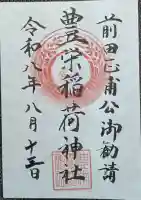 前田正甫公御勧請
豊栄稲荷神社
令和八年八月十三日